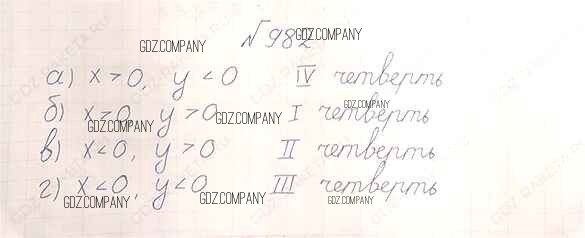 №982
а) x > 0, y < 0 IV четверть
б) x > 0, y > 0 I четверть
в) x < 0, y > 0 II четверть
г) x < 0, y < 0 III четверть
GDZ.COMPANY
GDZ.COMPANY
GDZ.COMPANY
GDZ.COMPANY
GDZ.COMPANY
GDZ.COMPANY
GDZ.COMPANY
GDZ.COMPANY